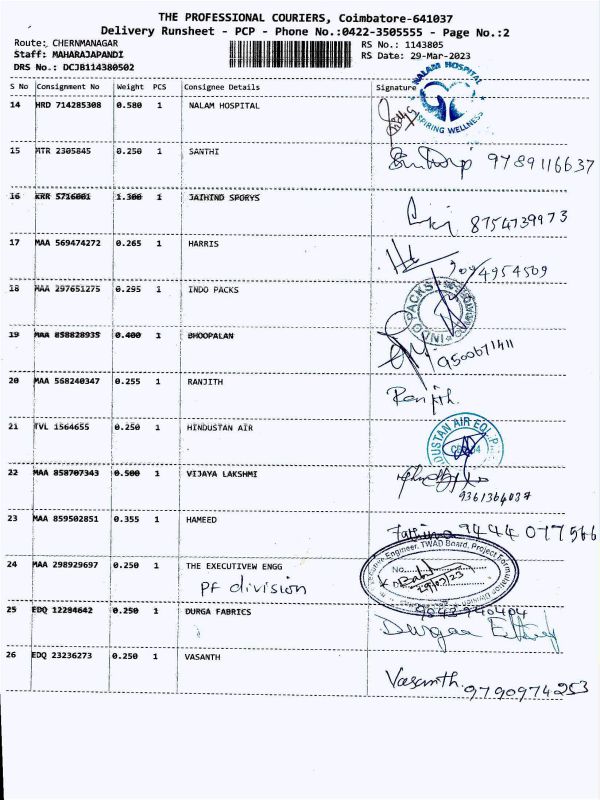 THE PROFESSIONAL COURIERS, Coimbatore-641037
Delivery Runsheet - PCP - Phone No.:0422-3505555 - Page No.:2
Route: CHERNMANAGAR RS No.: 1143805
Staff: MAHARAJAPANDI RS Date: 29-Mar-2023
DRS No.: DCJB114380502
NALAM HOSPITAL
S No Consignment No Weight PCS Consignee Details Signature
14 HRD 714285308 0.580 1 NALAM HOSPITAL
INSPIRING WELLNESS
15 MTR 2305845 0.250 1 SANTHI
9789116637
16 KRR 5716001 1.300 1 JAIHIND SPORYS
8754739973
17 MAA 569474272 0.265 1 HARRIS
4954509
18 MAA 297651275 0.295 1 INDO PACKS
INDO PACKS
19 MAA 858828935 0.400 1 BHOOPALAN
20 MAA 568240347 0.255 1 RANJITH
Ranjith.
21 TVL 1564655 0.250 1 HINDUSTAN AIR
22 MAA 858707343 0.500 1 VIJAYA LAKSHMI
23 MAA 859502851 0.355 1 HAMEED
Fathima 9444 077566
24 MAA 298929697 0.250 1 THE EXECUTIVEW ENGG
PF division
Executive Engineer, TWAD Board, Project Formulation Division
No.
29/03/23
25 EDQ 12284642 0.250 1 DURGA FABRICS
9043940404
Durgaa
26 EDQ 23236273 0.250 1 VASANTH
Vasanth. 9790974253